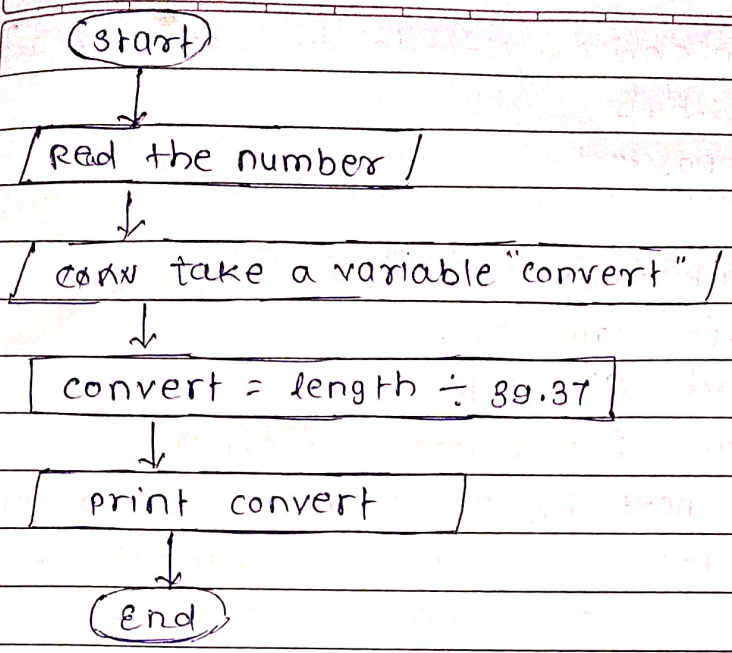 Start
Read the number
take a variable "convert"
convert = length ÷ 39.37
print convert
End